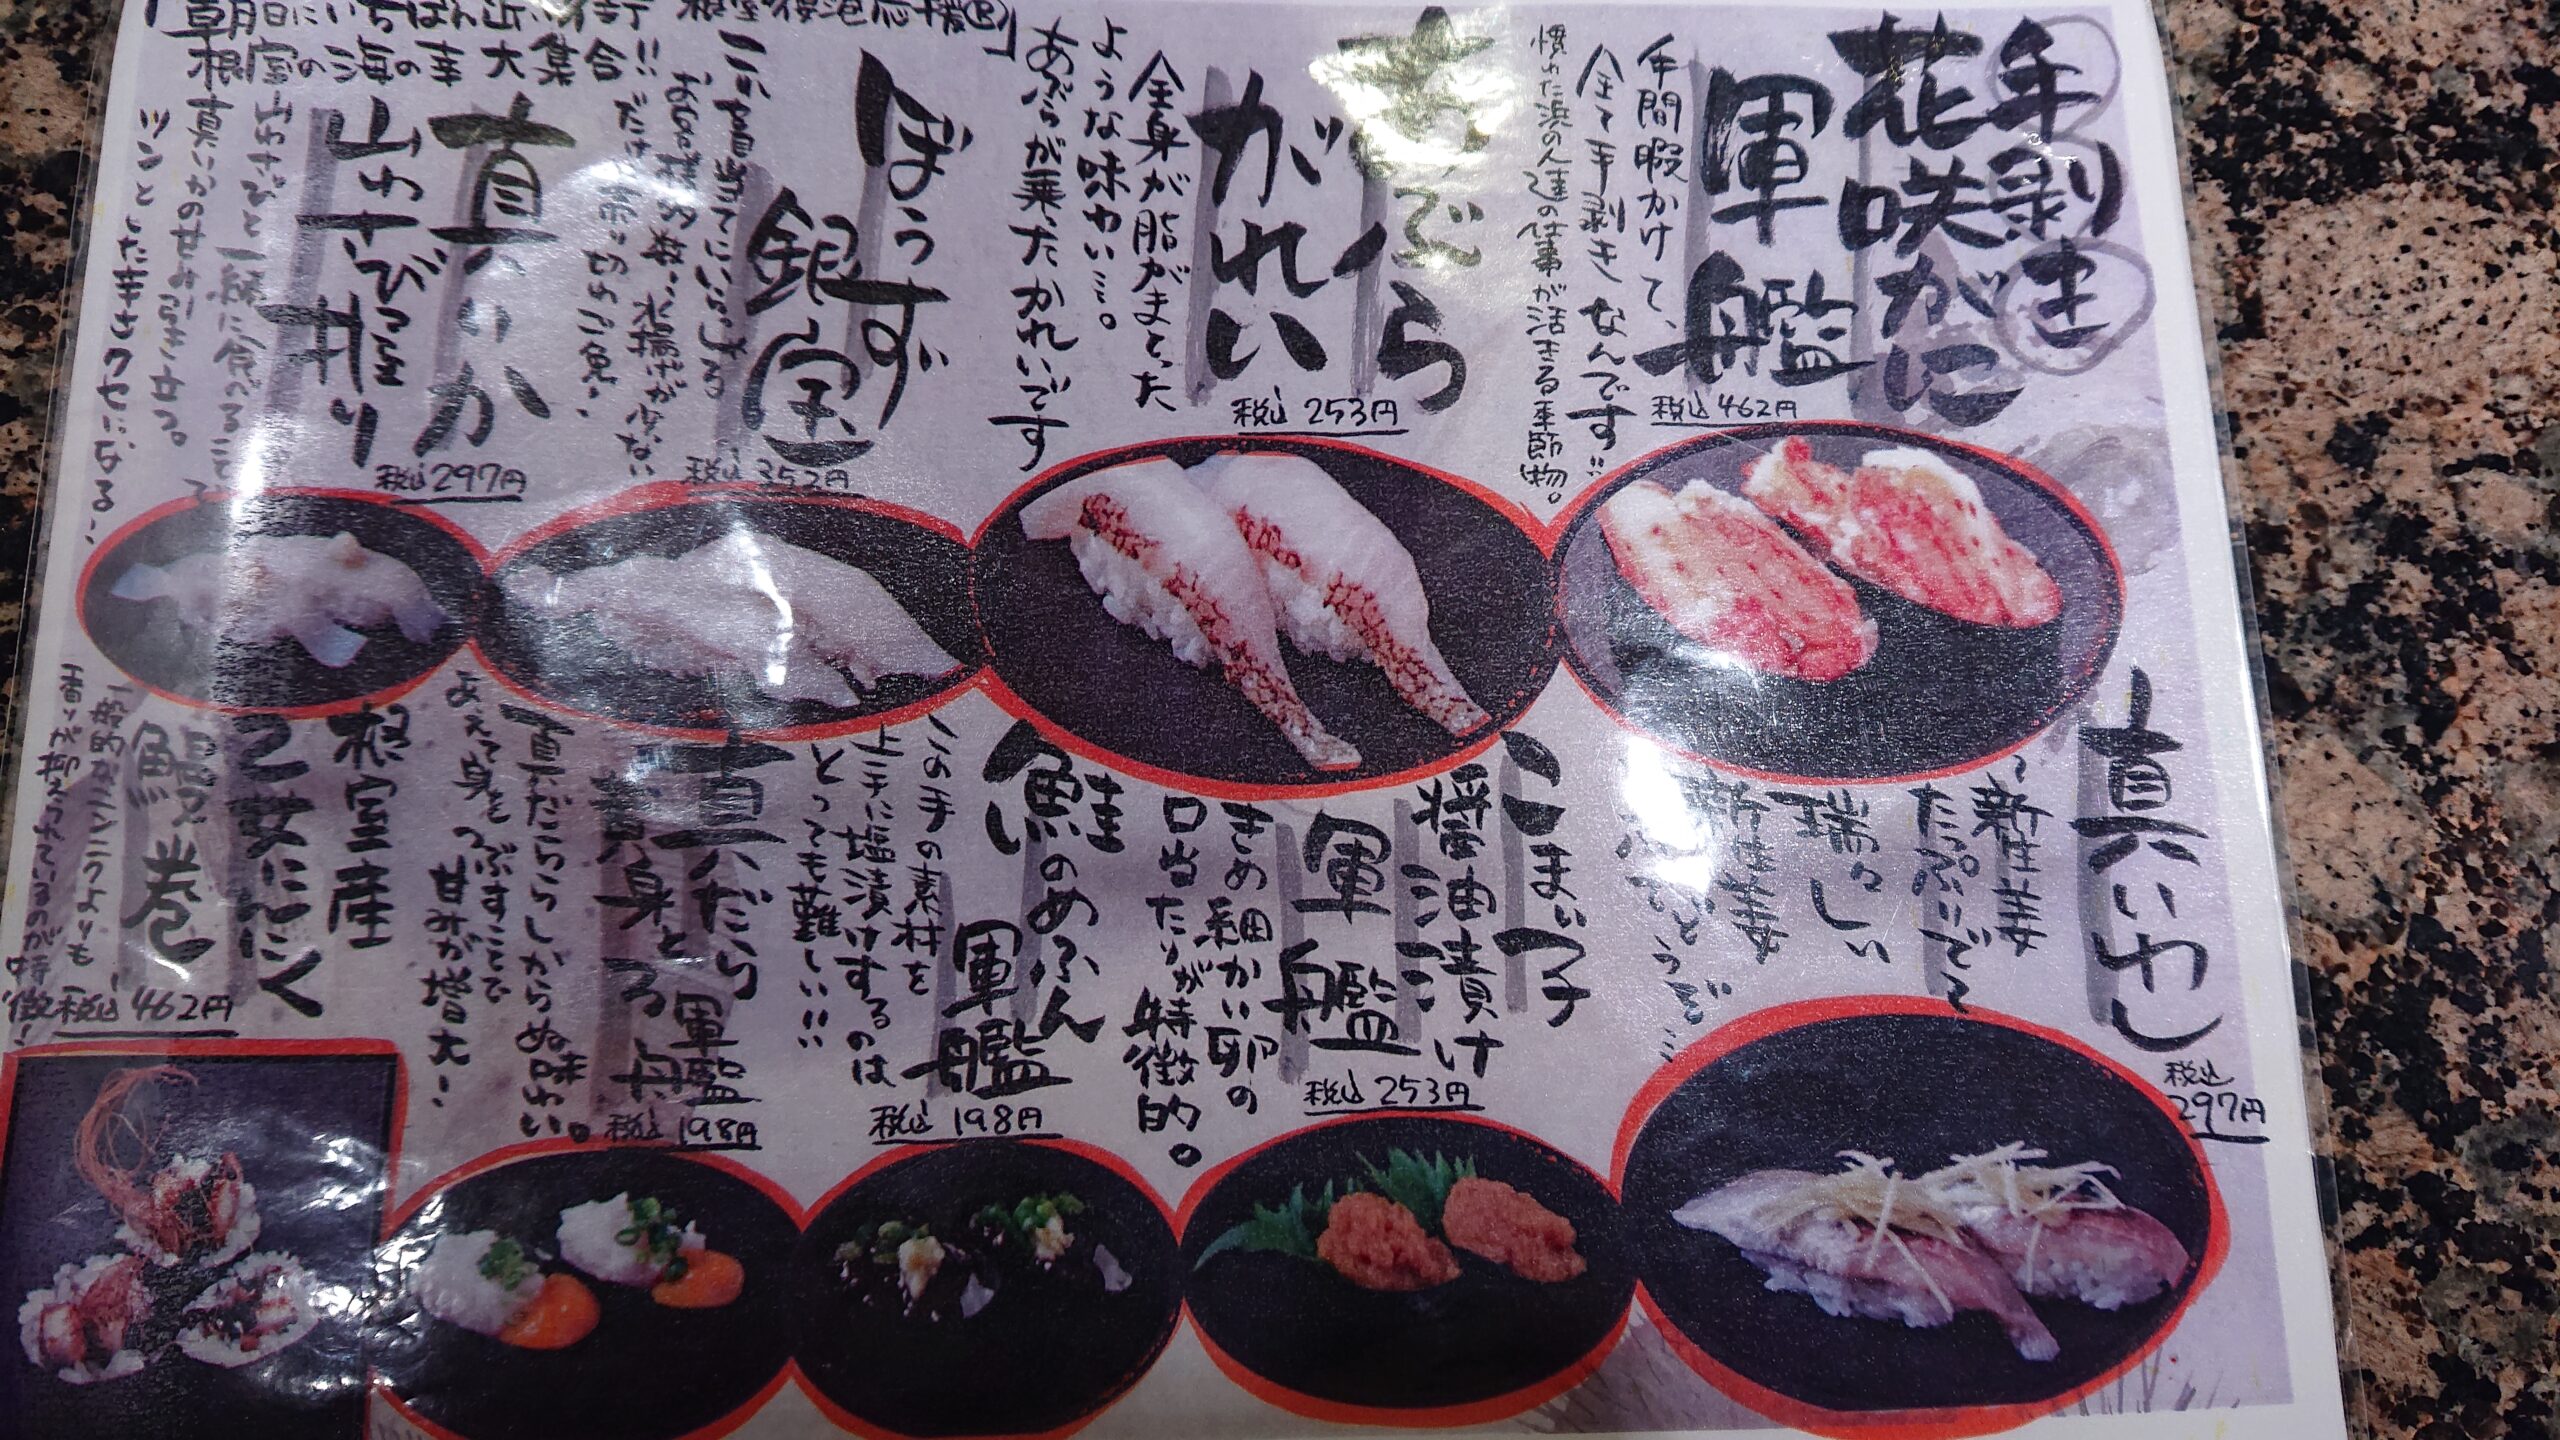 朝日にいちばん近い街
根室の海の幸 大集合!!
手剥き
花咲がに
軍艦
税込 462円
手間暇かけて、
全て手剥きなんです!!
慣れた浜の人達の仕事が活きる季節物。
あぶら
がれい
税込 253円
全身が脂がまとった
ような味わい…。
あぶらが乗ったかれいです
ぼうず
銀宝
税込 352円
お客様多数…水揚げが少ない
真いか
山わさび握り
税込 297円
山わさびと一緒に食べることで
真いかの甘み引き立つ。
ツンとした辛さクセになる…
真いわし
税込
297円
新生姜
たっぷりでて
瑞々しい
新生姜
こまい子
醤油漬け
軍艦
税込 253円
きめ細かい卵の
口当たりが特徴的。
鮭のめふん
軍艦
税込 198円
この手の素材を
上手に塩漬けするのは
とっても難しい!!
真だら
軍艦
税込 198円
真だららしからぬ味わい。
あえて身をつぶすことで
甘みが増大!
根室産
乙女にんにく
巻
税込 462円